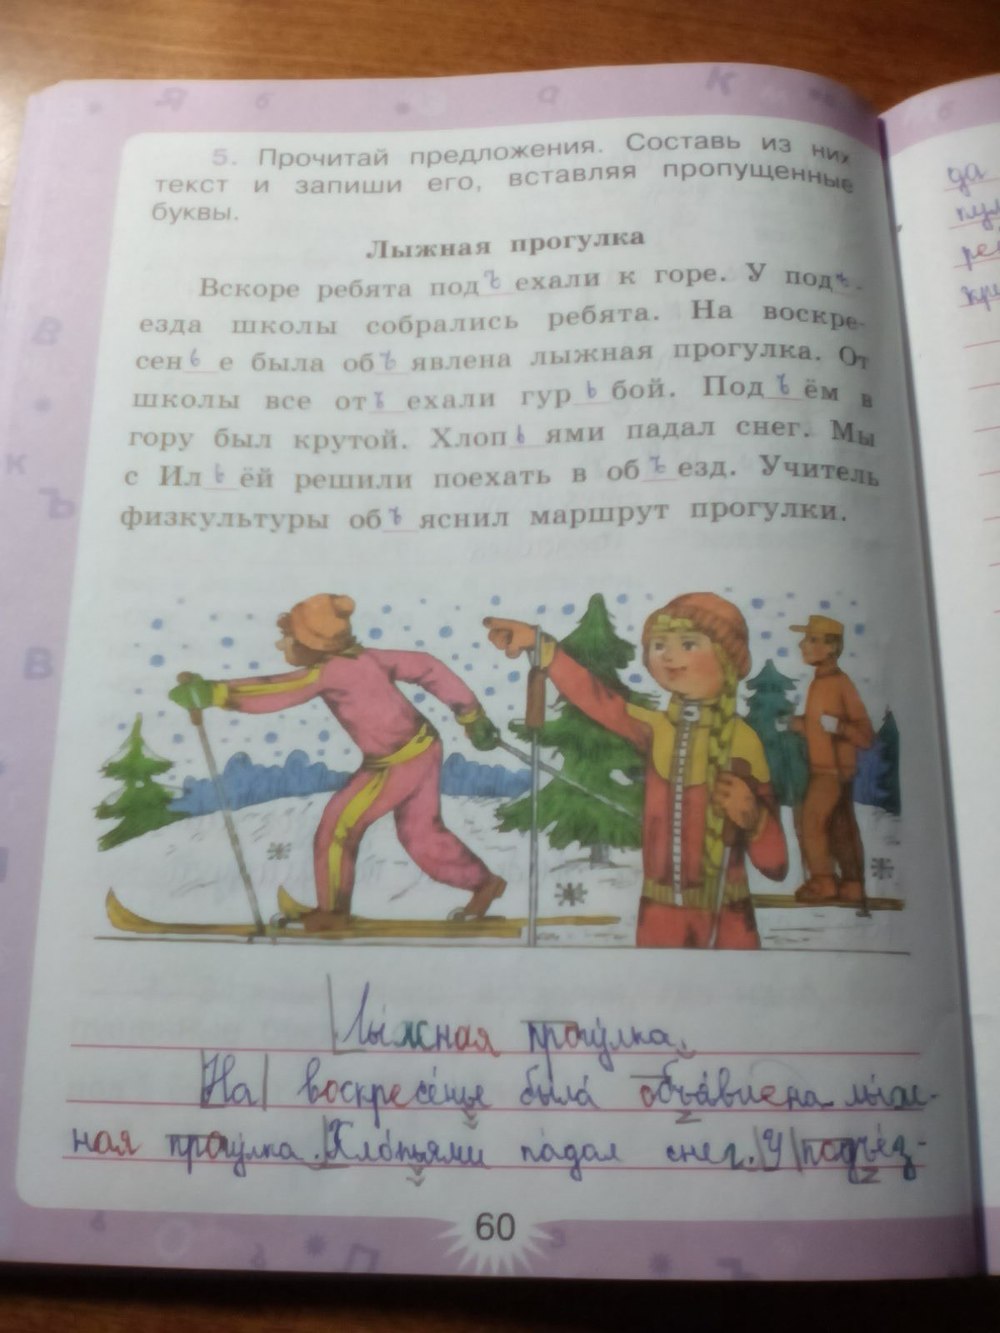 5. Прочитай предложения. Составь из них
текст и запиши его, вставляя пропущенные
буквы.
Лыжная прогулка
Вскоре ребята подъехали к горе. У подъ-
езда школы собрались ребята. На воскре-
сенье была объявлена лыжная прогулка. От
школы все отъехали гурьбой. Подъём в
гору был крутой. Хлопьями падал снег. Мы
с Ильёй решили поехать в объезд. Учитель
физкультуры объяснил маршрут прогулки.
Лыжная прогулка.
На воскресенье была объявлена лыж-
ная прогулка. Хлопьями падал снег. У подъез-
60
да